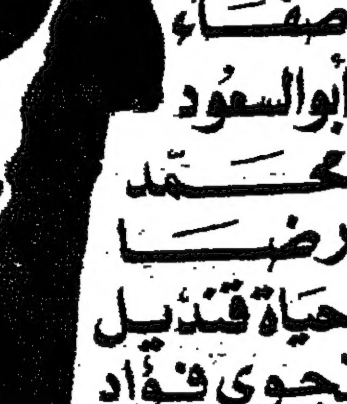 صفاء
أبوالسعُود
محمّد
رضا
حياة قنديل
نجوى فؤاد